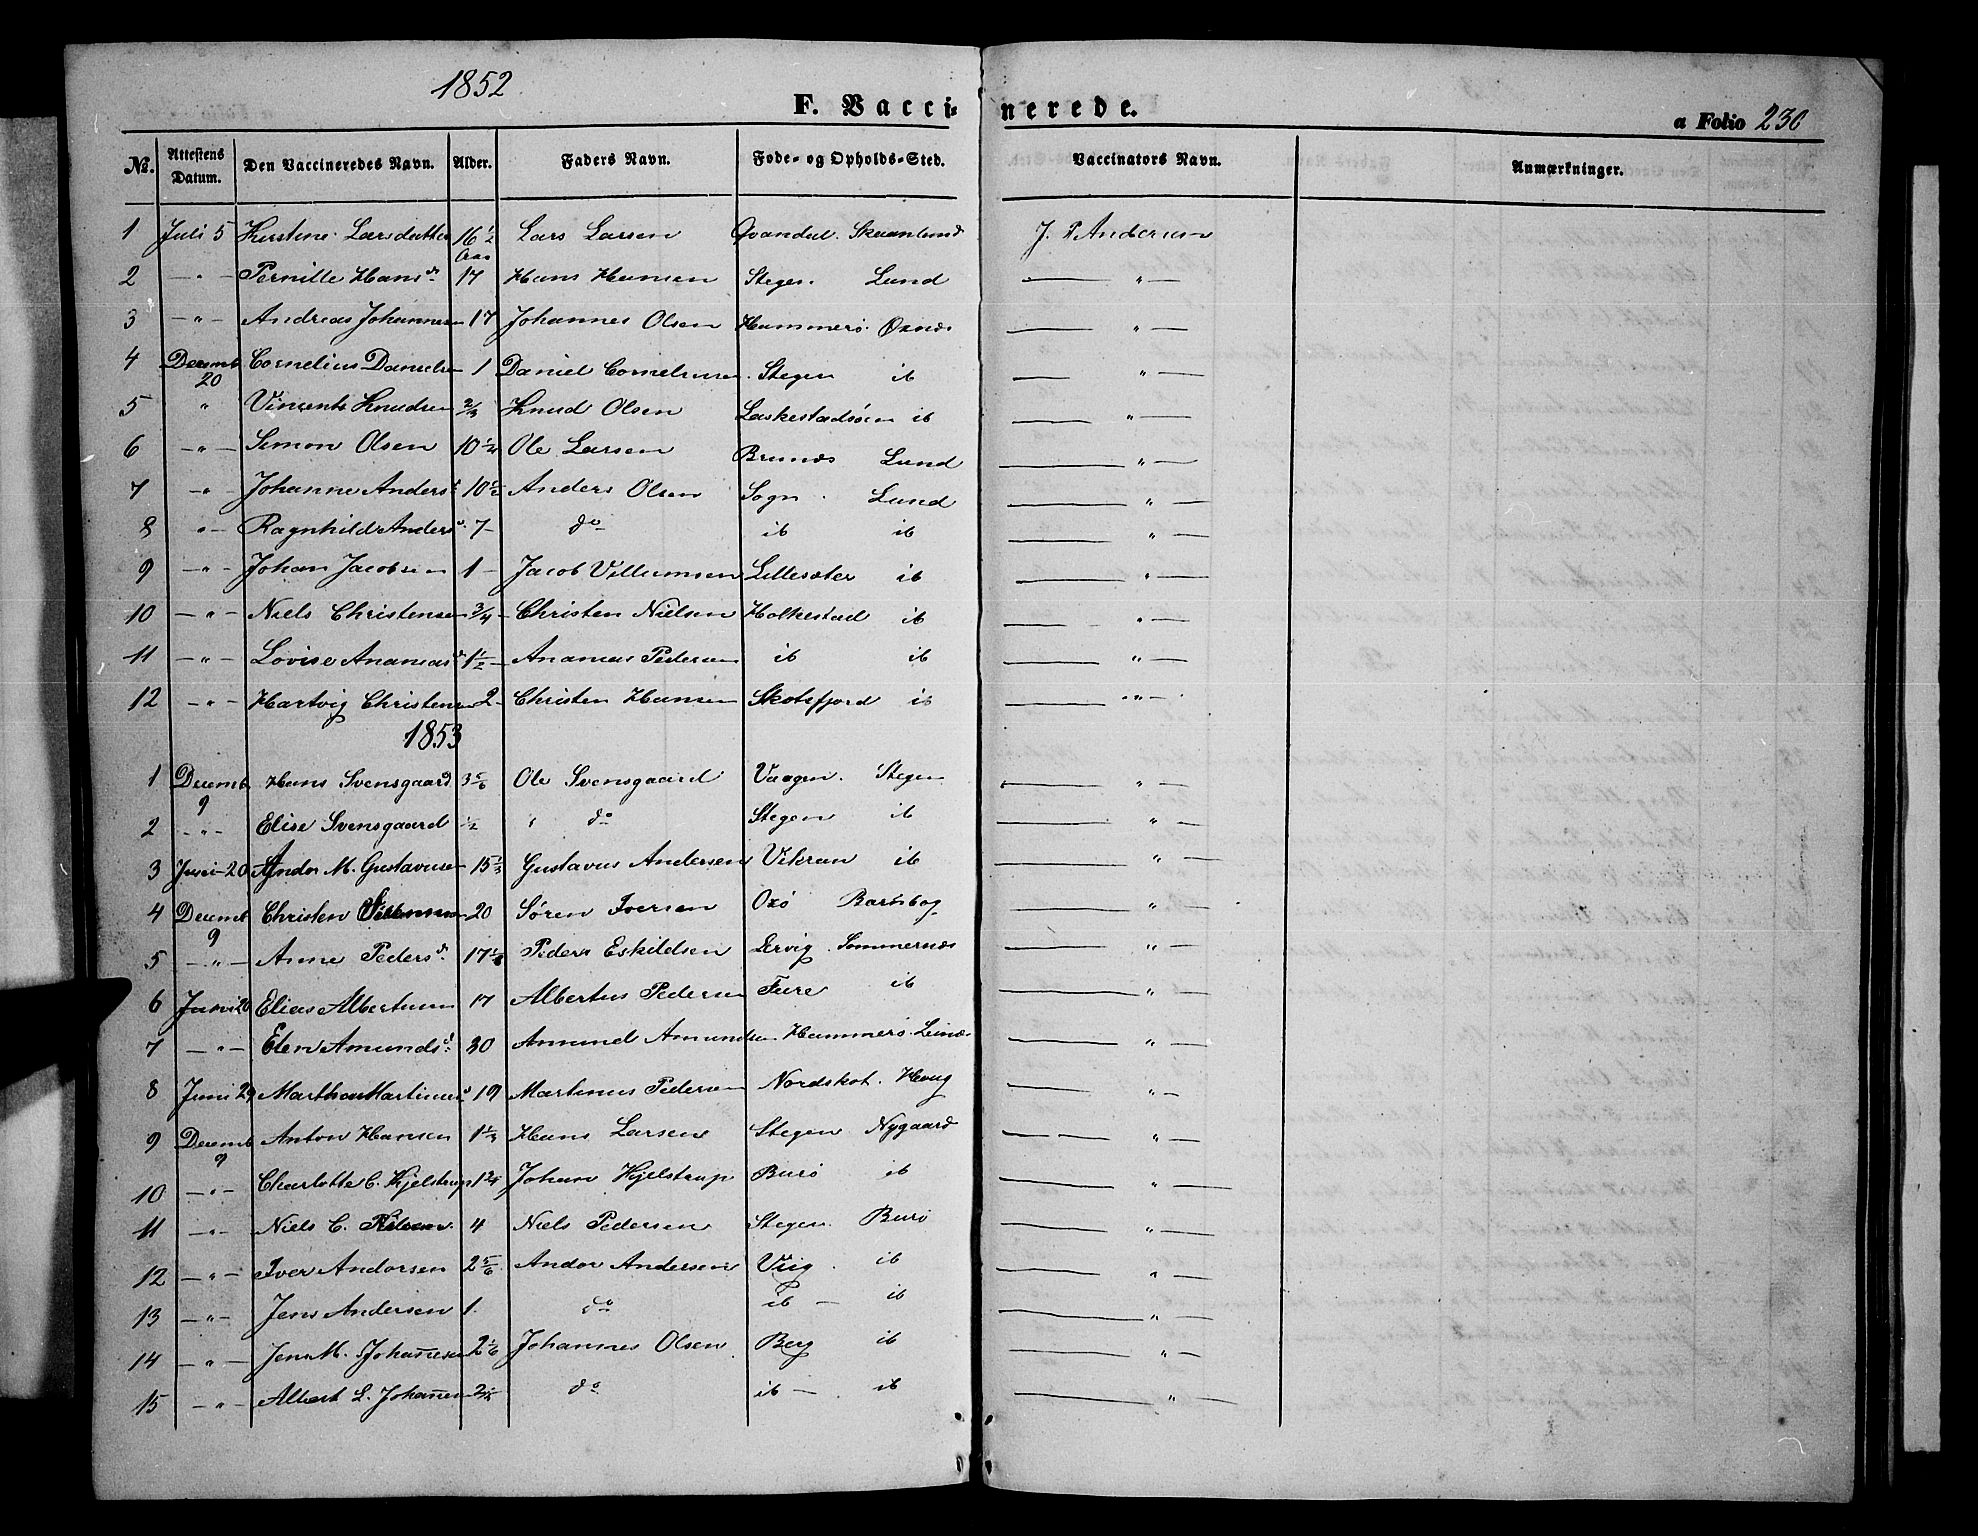 1852
F. Vaccinerede.
a Folio 230
No. Attestens Datum. Den Vaccineredes Navn. Alder. Faders Navn. Føde- og Opholds-Sted. Vaccinators Navn. Anmærkninger.
1 Juli 5 Kirstine Larsdatter 16 1/2 Aar Lars Larsen J. P. Andersen
2 - " - Pernille Hansd. 17 Hans Hansen Stegen. Lund - " -
3 - " - Andreas Johannesen 17 Johannes Olsen Hammerø. Oxnæs - " -
4 Decemb 20 Cornelius Danielsen 1 Daniel Corneliusen Stegen ib - " -
5 " Vincents Knudsen 2/3 Knud Olsen Laskestadøen ib - " -
6 - " - Simon Olsen 10 1/4 Ole Larsen Brunæs Lund - " -
7 - " - Johanne Andersd 10 Anders Olsen Sogn Lund - " -
8 " - Ragnhild Andersd. 7 - do ib ib - " -
9 - " - Johan Jacobsen 1 - Jacob Villumsen Lillesæter ib - " -
10 - " - Niels Christensen 3/4 - Christen Nielsen Holkestad ib - " -
11 - " - Lovise Ananiasd 1 1/2 - Ananias Pedersen ib ib - " -
12 - " - Hartvig Christensen 2 - Christen Hansen Skotsfjord ib - " -
1853
1 Decemb 9 Hans Svensgaard 3 5/6 Ole Svensgaard Vaagen. Stegen - " -
2 - " - Elise Svensgaard 1/2 " do Stegen ib - " -
3 Juni 20 Andor M. Gustavusen 15 1/3 Gustavus Andersen Vikran ib - " -
4 Decemb 9 Christen 20 Søren Iversen Oxø - " -
5 - " - Anne Pedersd. 17 Peder Eskildsen Lervig. Sommernæs - " -
6 Juni 20 Elias Albertusen 17 Albertus Pedersen Fure ib - " -
7 - " - Elen Amundsd. 30 Amund Amundsen Hammerø. Leinæs - " -
8 Juni 29 Martha Martinusd 19 Martinus Pedersen Nordskot. Houg - " -
9 Decemb 9 Anton Hansen 1 1/3 Hans Larsen Stegen Nygaard - " -
10 - " - Charlotte C. Hjelstrup 1 3/4 Johan Hjelstrup Burø ib - " -
11 - " - Niels C. Nilsen 4 Niels Pedersen Stegen. Burø - " -
12 - " - Iver Andorsen 2 5/6 Andor Andersen Viig. ib - " -
13 - " - Jens Andersen 1. do ib - ib - " -
14 - " - Jens M. Johañesen 2 1/6 Johannes Olsen Berg ib - " -
15 - " - Albert L. Johañesen 2 do ib - ib - " -